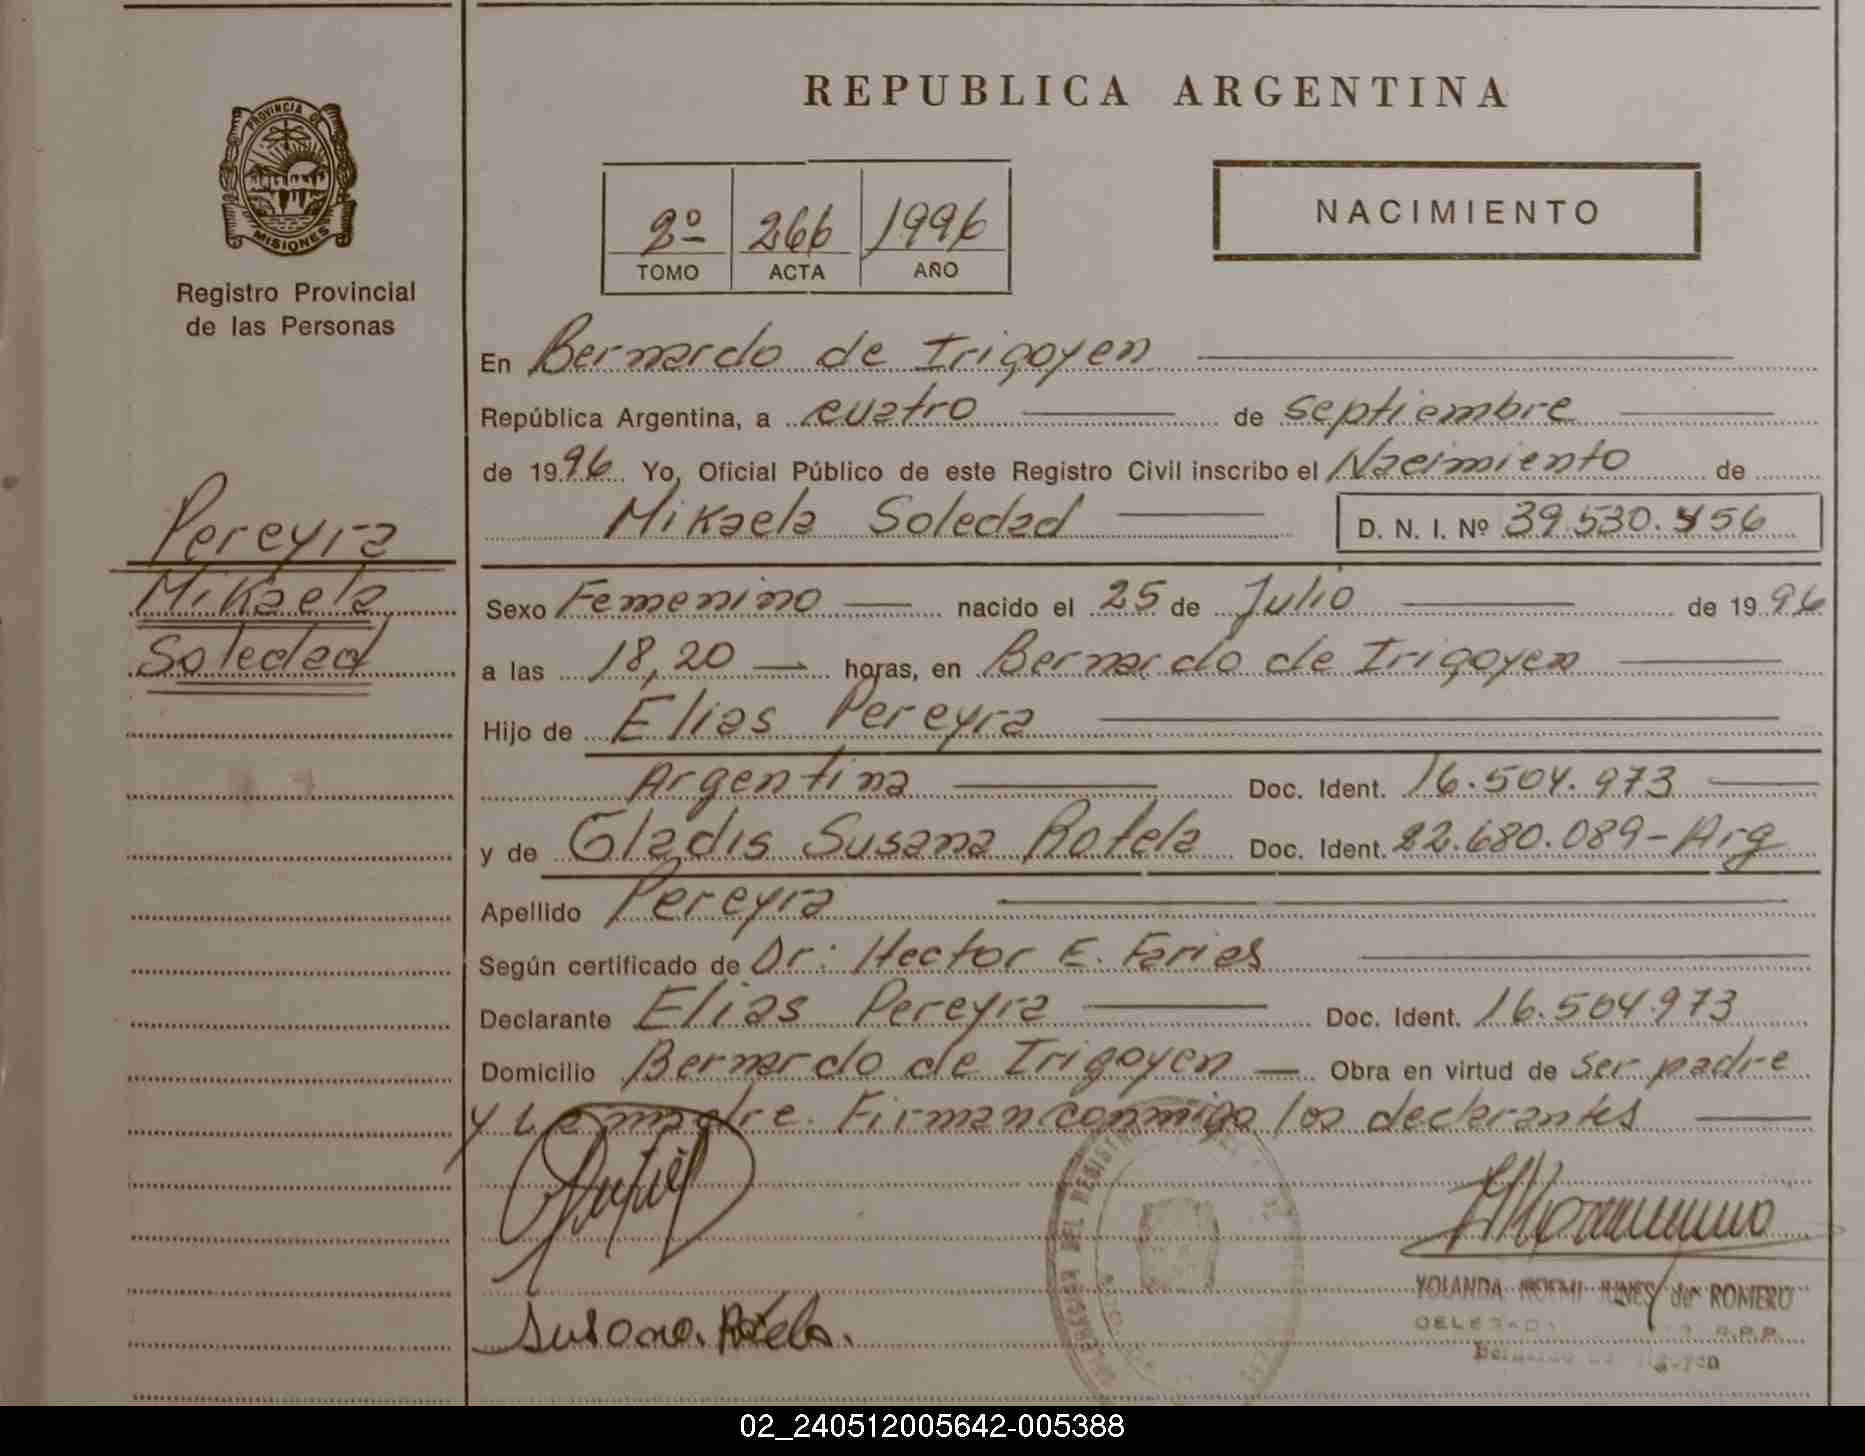 REPUBLICA ARGENTINA
PROVINCIA DE
MISIONES
Registro Provincial
de las Personas
Pereyra
Mikaela
Soledad
2º 266 1996
TOMO ACTA AÑO
NACIMIENTO
En Bernardo de Irigoyen
República Argentina, a cuatro de septiembre
de 1996 Yo, Oficial Público de este Registro Civil inscribo el Nacimiento de
Mikaela Soledad D. N. I. Nº 39.530.456
Sexo Femenino nacido el 25 de Julio de 1996
a las 18,20 horas, en Bernardo de Irigoyen
Hijo de Elias Pereyra
Argentina Doc. Ident. 16.504.973
y de Gladis Susana Rotela Doc. Ident. 22.680.089-Arg
Apellido Pereyra
Según certificado de Dr: Hector E. Farias
Declarante Elias Pereyra Doc. Ident. 16.504.973
Domicilio Bernardo de Irigoyen Obra en virtud de ser padre
y La madre. Firman conmigo los declarantes
DEL REGISTR
YOLANDA NOEMI de ROMERO
Susana Rotela.
02_240512005642-005388